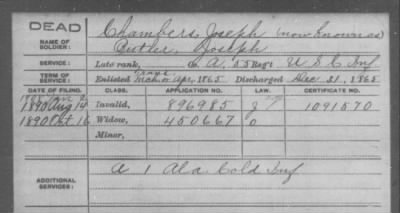 DEAD
NAME OF SOLDIER: Chambers, Joseph (now known as)
Butler, Joseph
SERVICE: Late rank, C A, 55 Reg't U S C Inf
TERM OF SERVICE: Enlisted Mch or Apr, 1865 Discharged Dec 31, 1865
DATE OF FILING. CLASS. APPLICATION NO. LAW. CERTIFICATE NO.
1890 Aug 14 Invalid, 896985 1091570
1890 Oct 16 Widow, 450667 O
Minor,
ADDITIONAL SERVICES: A 1 Ala Cold Inf